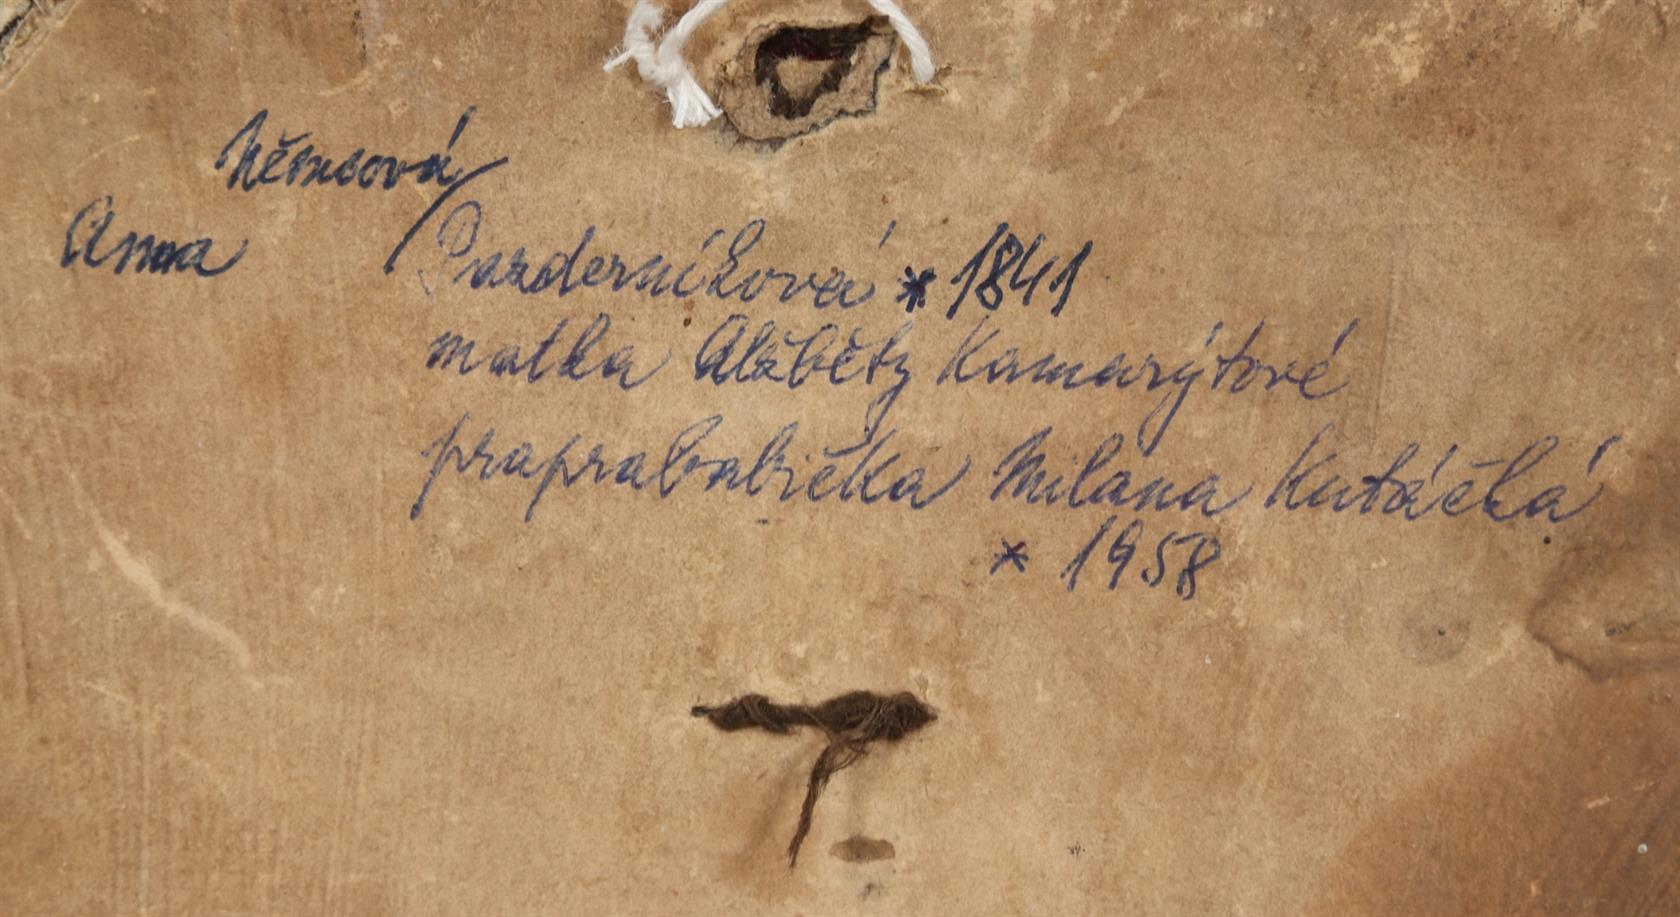 Němcová/
Anna Pazderníková * 1841
matka Alžběty Kamarýtové
praprababička Milana Kutáčká
* 1958